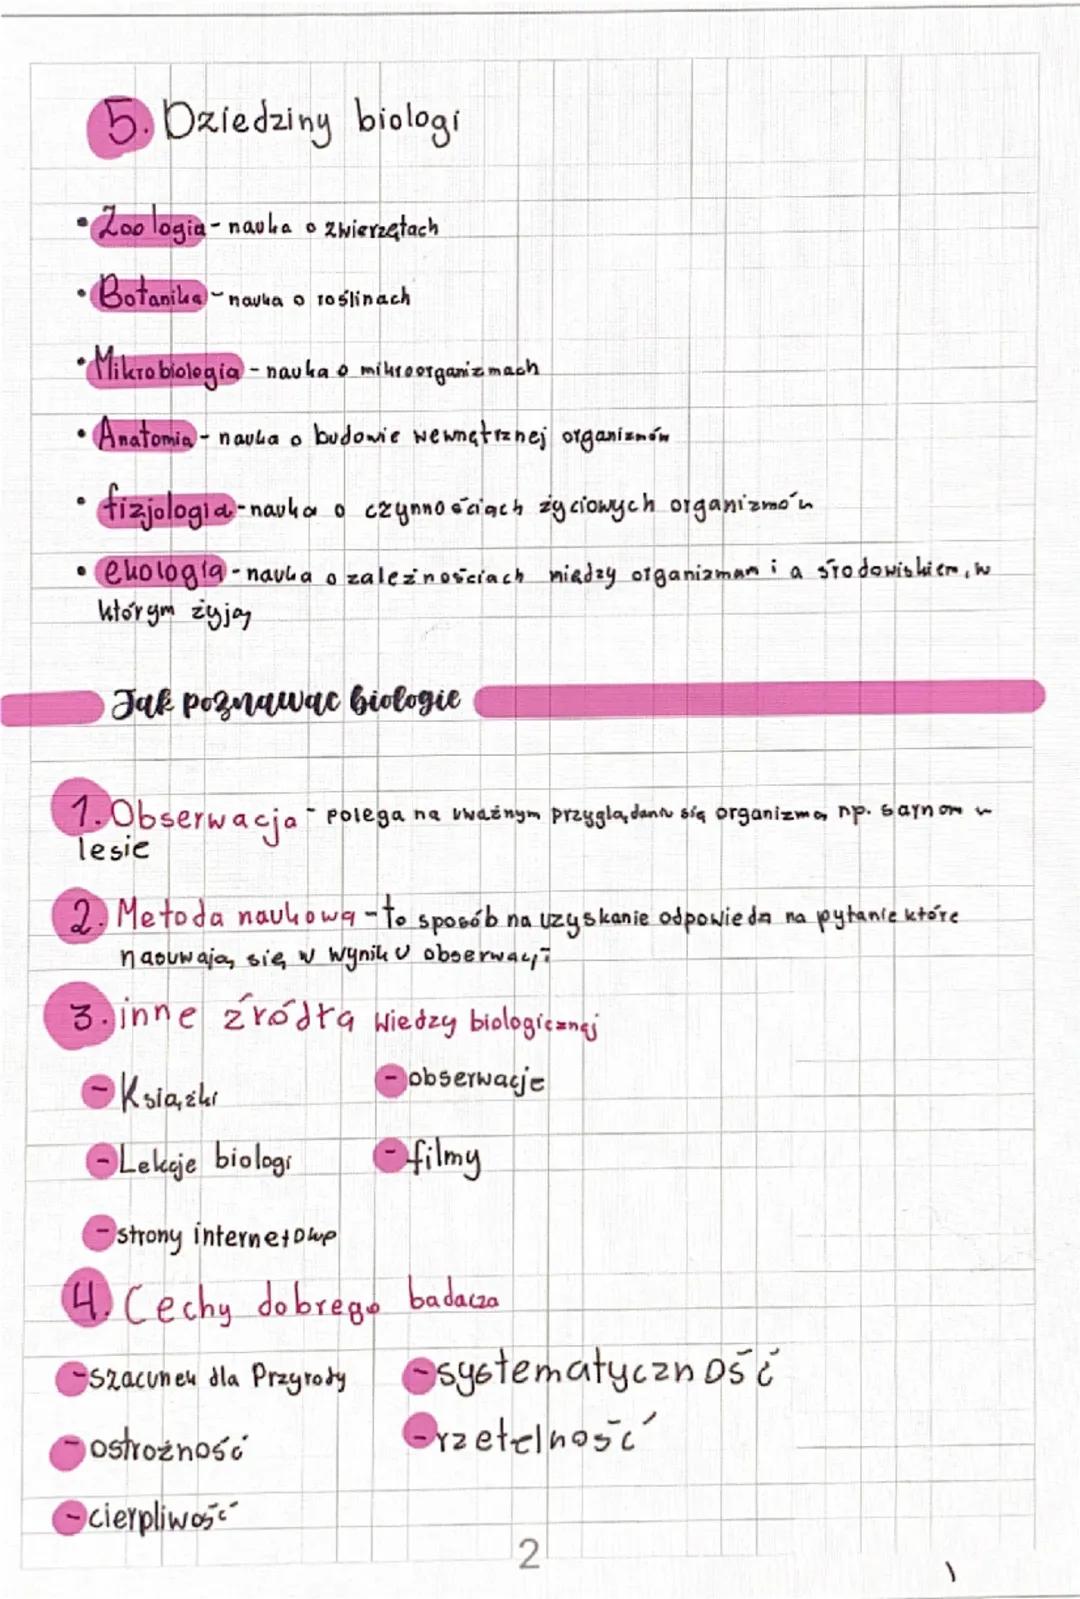 5. Dziedziny biologi
• Zoologia - nauka o zwierzętach
• Botanika - nauka o roślinach
• Mikrobiologia - nauka o mikroorganizmach
• Anatomia - nauka o budowie wewnętrznej organizmów
• fizjologia - nauka o czynnościach życiowych organizmów
• ekologia - nauka o zależnościach między organizmami a środowiskiem, w
którym żyją
Jak poznawac biologie
1. Obserwacja - polega na uważnym przyglądaniu się organizmą np. sarnom w
lesie
2. Metoda naukowa - to sposób na uzyskanie odpowiedzi na pytanie które
nasuwają się w wyniku obserwacji
3. inne źródła wiedzy biologicznej
- Książki
- obserwacje
- Lekcje biologi
- filmy
- strony internetowe
4. Cechy dobrego badacza
- szacunek dla Przyrody
- systematyczność
- ostrożność
- rzetelność
- cierpliwość
2